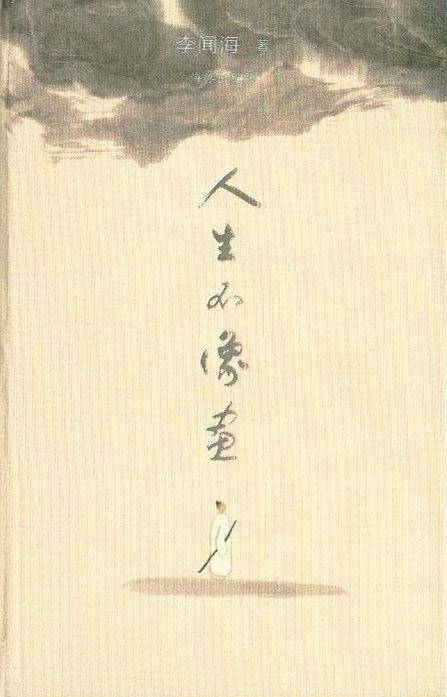 李闻海 著
人生不像画